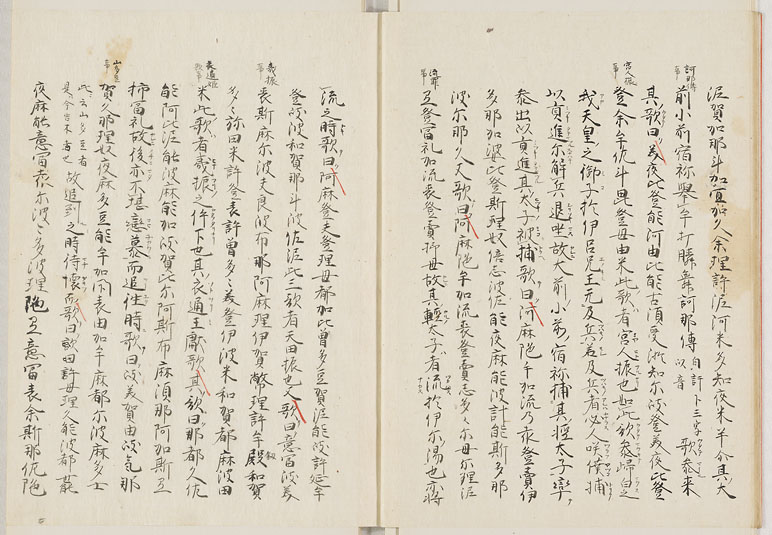 泥賀加那斗加宜加久余理許泥阿米多知夜米牟尒其大
訶那傳事
前小前宿祢擧手打膝儛訶那傳自訶下三字以音歌参来
其歌曰美夜比登能阿由比能古須受淤知尓岐登美夜比登
宮人振事
登余牟佐斗毘登母由米此歌者宮人振也如此歌参帰白之
我天皇之御子於伊呂兄王无及兵若及兵者必人咲僕捕
以貢進尓解兵退坐故大前小前宿祢捕其軽太子率
参出以貢進其太子被捕歌曰阿麻陁牟加流乃袁登賣伊
多那加婆比登斯理奴倍志波佐能夜麻能波斗能斯多那
波尓那久又歌曰阿麻陁牟加流袁登賣志多々尓母尓理泥
弖登冨礼加流袁登賣杼母故其軽太子者流於伊尓湯也亦將
流之時歌曰阿麻登夫登理母都加比曽多豆賀泥能岐許延牟
登岐波和賀那斗波佐泥此三歌者天田振也又歌曰意冨岐美
夷振事
袁斯麻尓波夫良波布那阿麻理伊賀幣理許牟叙和賀
多々弥由米許登袁許曽多々美登伊波米和賀都麻波由
衣通姫歌事
米此歌者夷振之片下也其衣通王献歌其歌曰那都久佐
能阿比泥能波麻能加岐賀比尓阿斯布麻須那阿加斯弖
杼冨礼故後亦不堪戀慕而追往時歌曰岐美賀由岐氣那
山多豆事
賀久那理奴夜麻多豆能牟加閇袁由加牟麻都尓波麻多士
此云山多豆者是今造木者也故追到之時待懐而歌曰許母理久能波都世能
夜麻能意冨袁尓波波多波理陁弖意冨袁余斯那佐陁